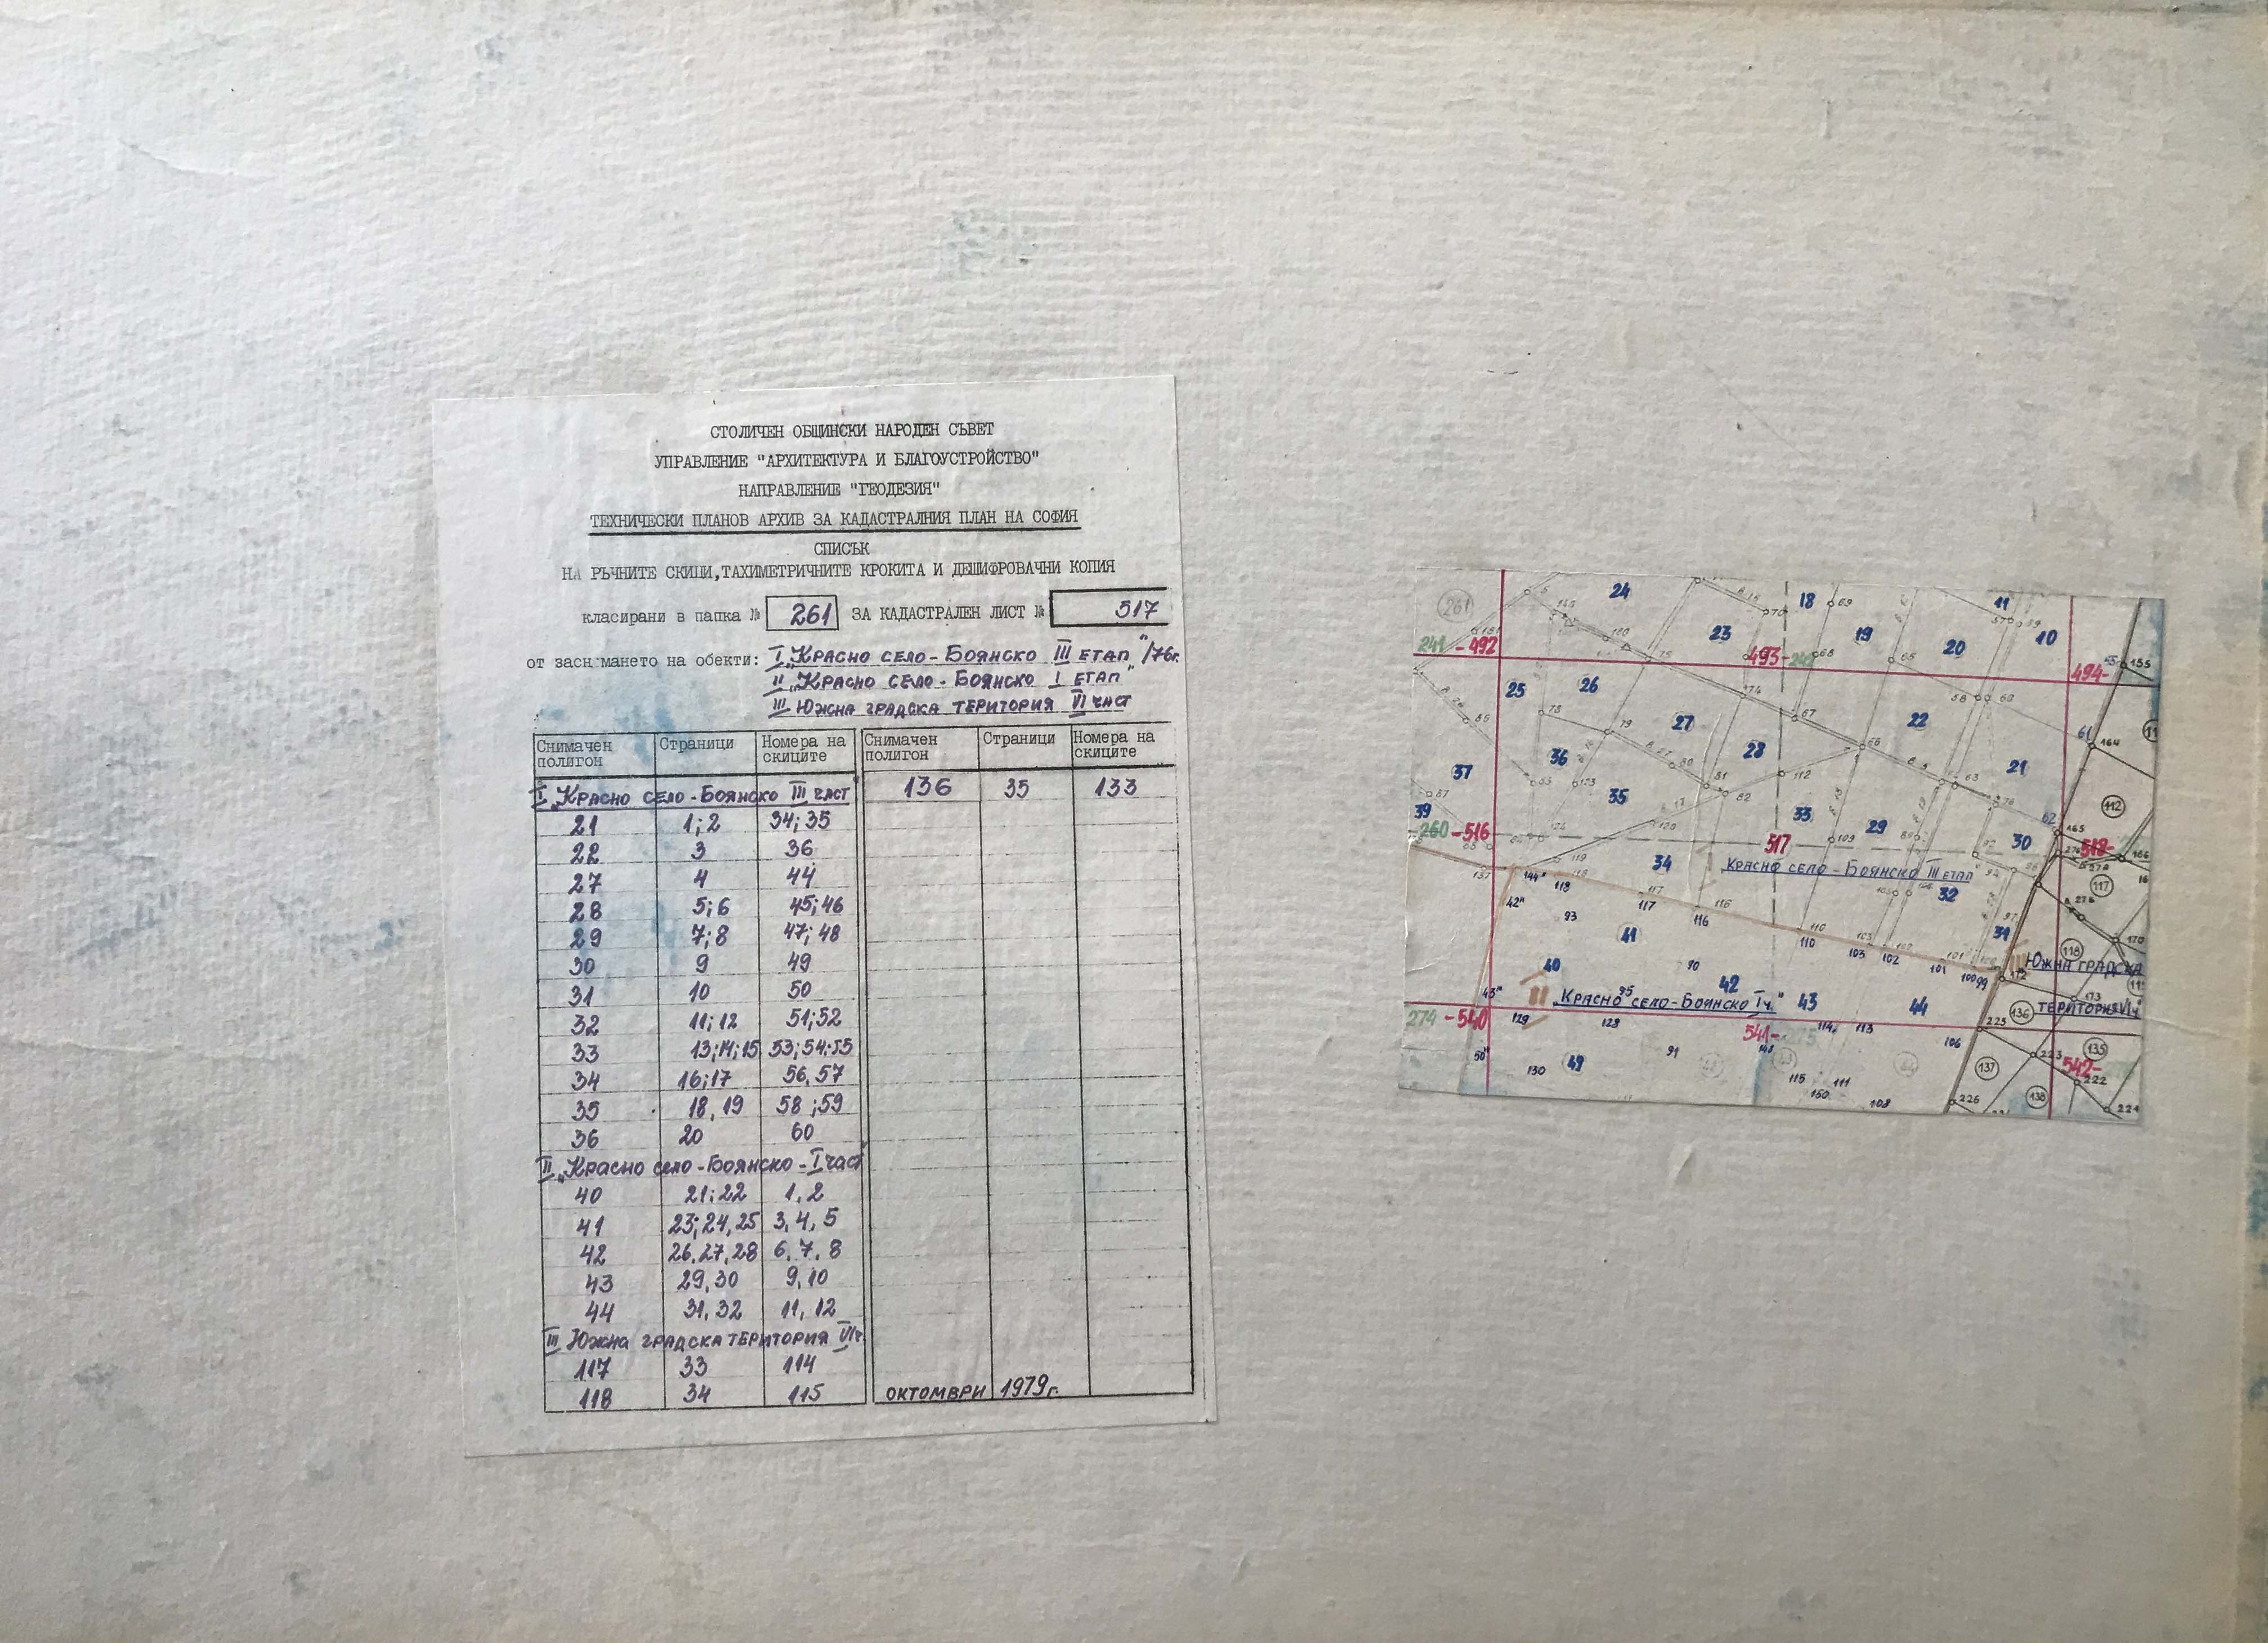 СТОЛИЧЕН ОБЩИНСКИ НАРОДЕН СЪВЕТ
УПРАВЛЕНИЕ "АРХИТЕКТУРА И БЛАГОУСТРОЙСТВО"
НАПРАВЛЕНИЕ "ГЕОДЕЗИЯ"
ТЕХНИЧЕСКИ ПЛАНОВ АРХИВ ЗА КАДАСТРАЛНИЯ ПЛАН НА СОФИЯ
СПИСЪК
НА РЪЧНИТЕ СКИЦИ, ТАХИМЕТРИЧНИТЕ КРОКИТА И ДЕШИФРОВАЧНИ КОПИЯ
класирани в папка № 261 ЗА КАДАСТРАЛЕН ЛИСТ № 517
от заснемането на обекти: I „КРАСНО СЕЛО-БОЯНСКО III ЕТАП"/76г.
II „КРАСНО СЕЛО-БОЯНСКО I ЕТАП"
III ЮЖНА ГРАДСКА ТЕРИТОРИЯ VI ЧАСТ
Снимачен полигон Страници Номера на скиците Снимачен полигон Страници Номера на скиците
I „КРАСНО СЕЛО-БОЯНСКО III ЧАСТ" 136 35 133
21 1;2 34;35
22 3 36
27 4 44
28 5;6 45;46
29 7;8 47;48
30 9 49
31 10 50
32 11;12 51;52
33 13;14;15 53;54;55
34 16;17 56,57
35 18,19 58;59
36 20 60
II „КРАСНО СЕЛО-БОЯНСКО-I ЧАСТ
40 21;22 1,2
41 23;24,25 3,4,5
42 26,27,28 6,7,8
43 29,30 9,10
44 31,32 11,12
III ЮЖНА ГРАДСКА ТЕРИТОРИЯ VI ч.
117 33 114
118 34 115 ОКТОМВРИ 1979г.
261 24 18 69 11 10
23 19 20
241-492 493- 68 65 494- 155
25 26 75 74 58 60
78 79 27 67 22 61 164
37 36 28 66 21
80 81 82 112 63
87 39 35 33 29 62 112
260-516 517 109 30 165 518-
119 34 КРАСНО СЕЛО-БОЯНСКО III ЕТАП 117
144" 118 117 116 32
42" 93 41 110 31 118 170
40 90 103 102 101 100 99 172 ЮЖНА ГРАДСКА
43" II „КРАСНО СЕЛО-БОЯНСКО I ч." 95 42 43 44 173
274-540 129 128 541- 114 113 225 136 ТЕРИТОРИЯ VI ч"
50" 49 91 106 223 135
130 115 111 137 542- 222
150 108 226 138 221